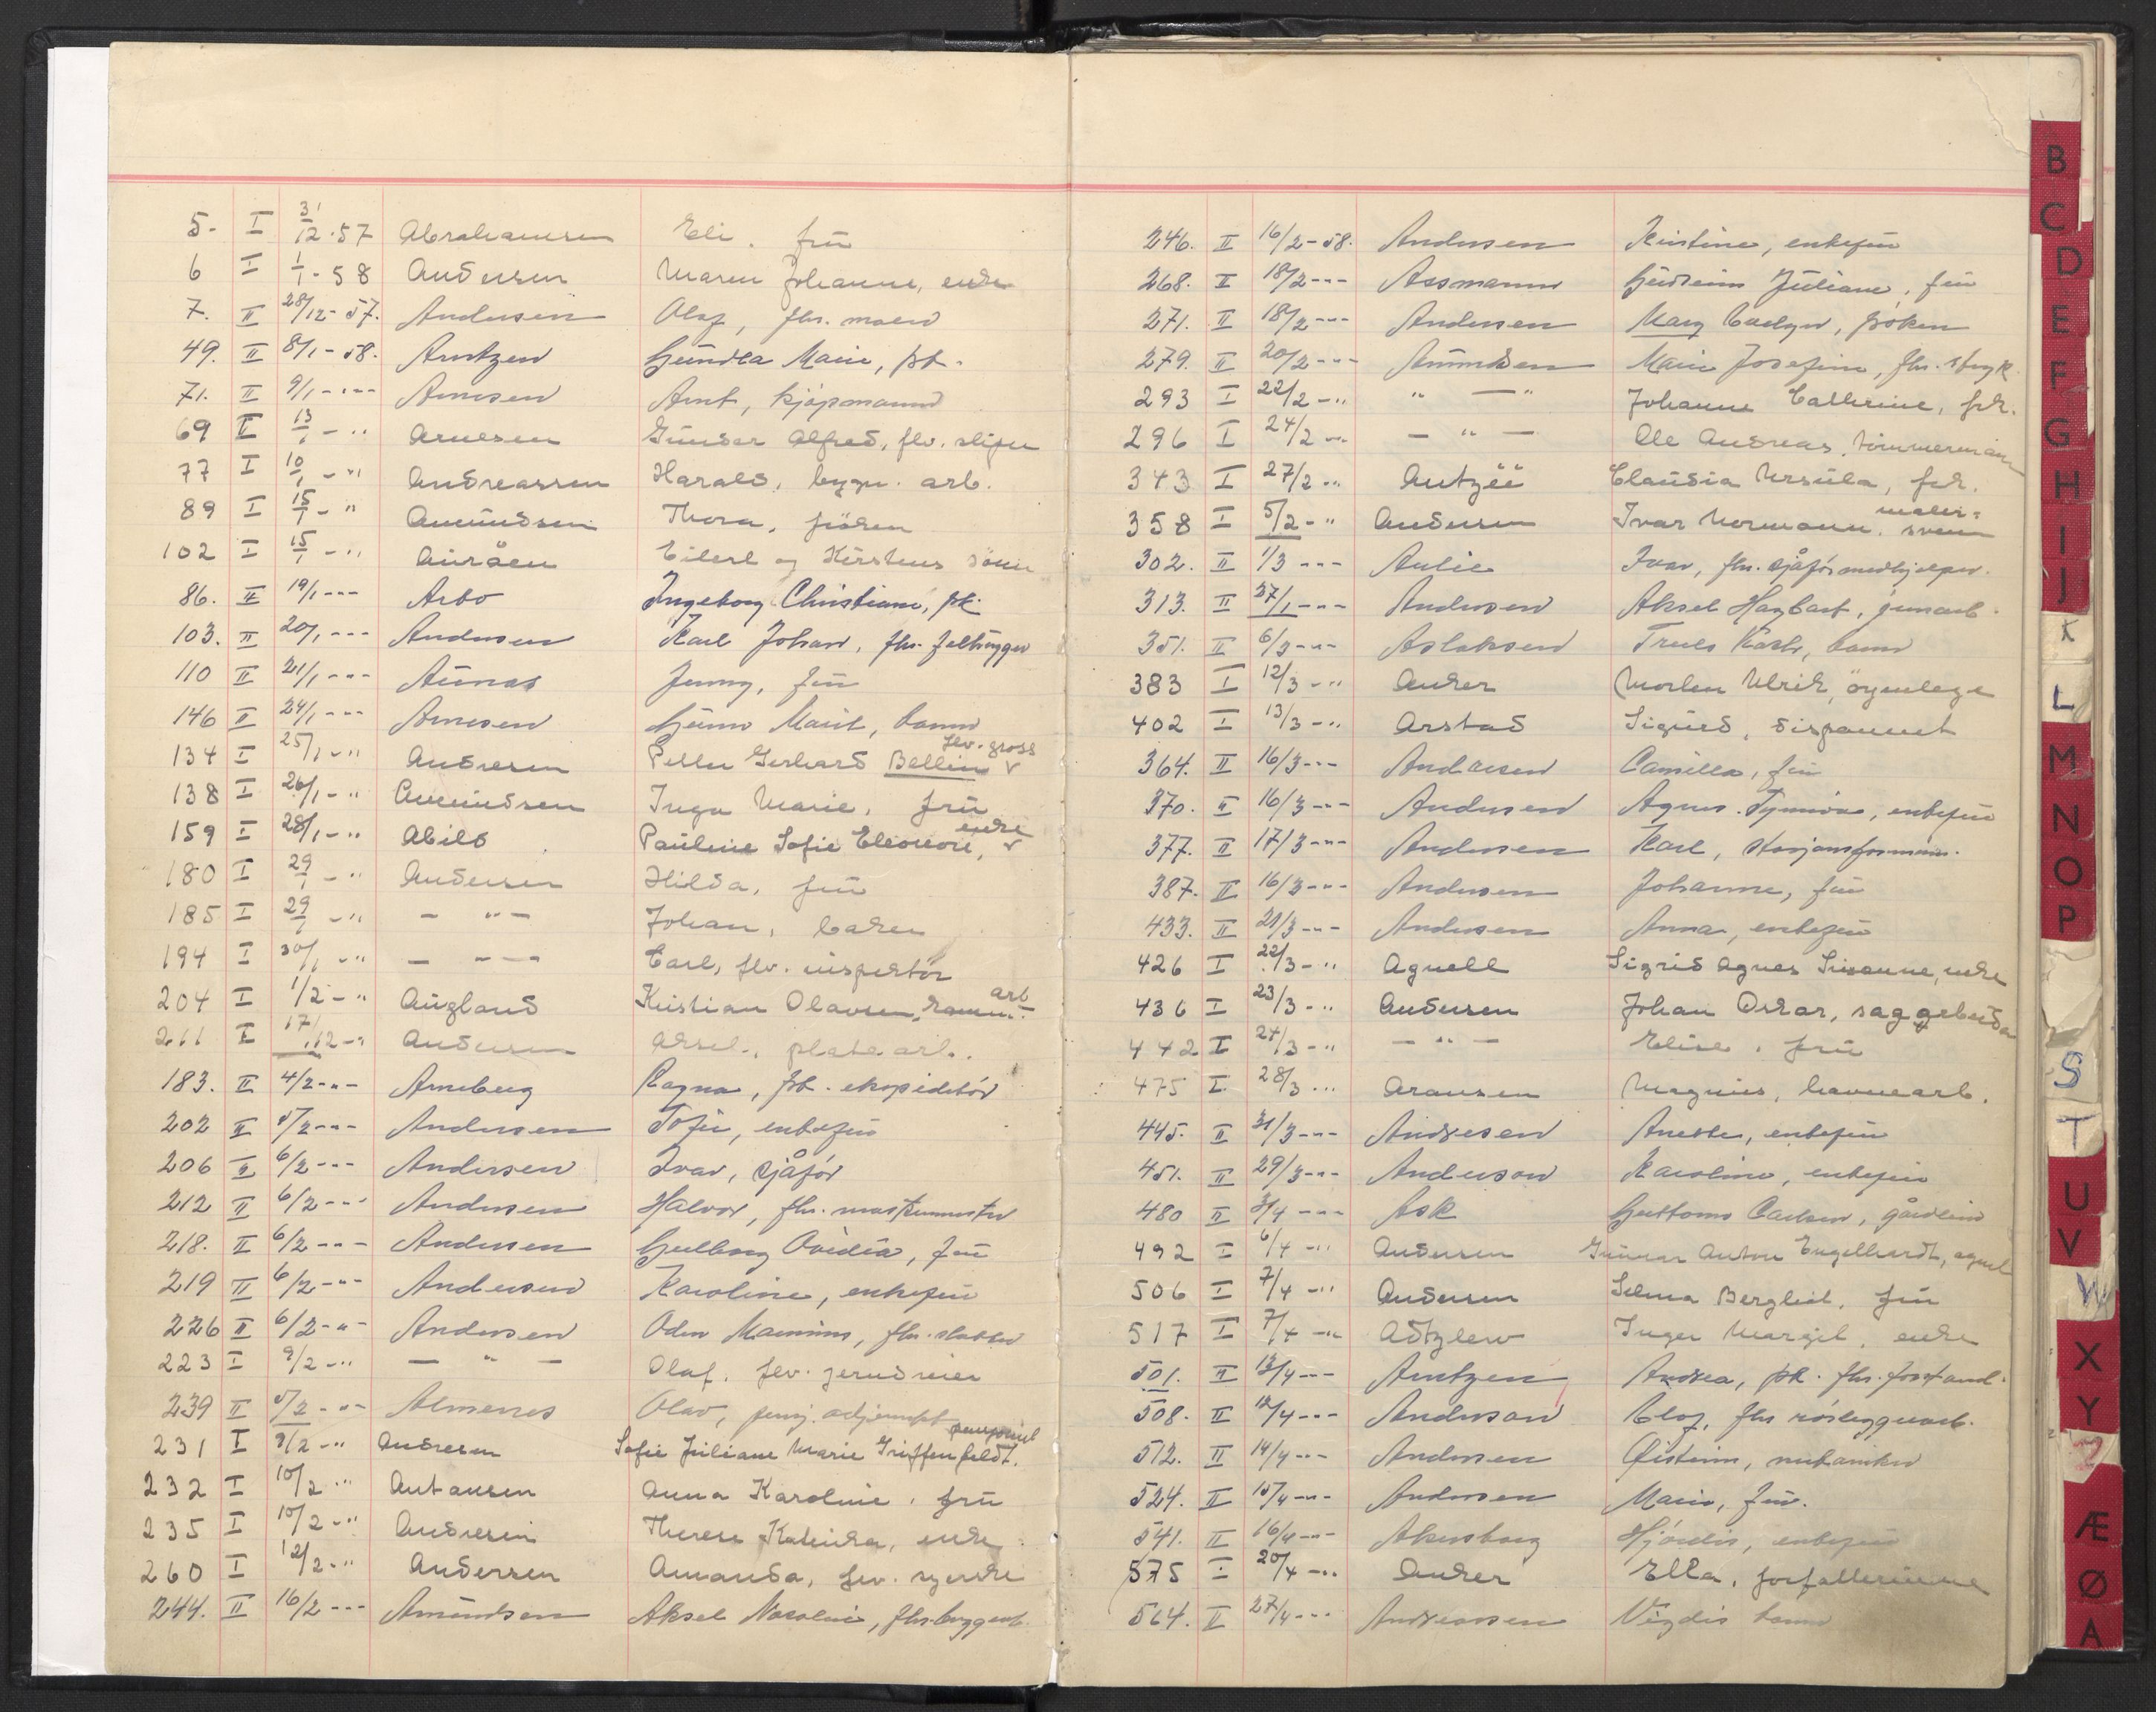 5. I 31/12-57 Abrahamsen Eli, frü
6 I 1/1-58 Andersen Maren Johanne, enke
7. II 28/12-57. Andersen Olaf, fhv.
49. II 8/1-58. Arntzen Gündla Marie, frk.
71. II 9/1-"- Arnesen Arnt, kjøpmann
69 I 13/1-" Arnesen Günder Alfred, flv. sliper
77 I 10/1-" Andreassen Harald, bygn. arb.
89 I 15/1-" Amündsen Thora, frøken
102 I 15/1-" Aüråen Eilert og Kirstens sønn
86. II 19/1-"- Arbo Ingeborg Christiane, frk.
103. II 20/1-"- Andersen Karl Johan, fhv. feltbygger
110 II 21/1-"- Aünas Jenny, frü
146 II 24/1-"- Arnesen Günn Marit, barn
flv. gross
134 I 25/1-" Andresen Petter Gerhard Bellin v
138 I 26/1-" Amündsen Inga Marie, frü
enke
159 I 28/1-" Abild Pauline Sofie Eleonore, v
180 I 29/1-" Andersen Hilda, frü
185 I 29/1-" - " - Johan, baker
194 I 30/1-" - " - Carl, flv. inspektør
arb.
204 I 1/2-" Aügland Kristian Olavsen, komm.
211 I 17/12-" Andersen Aksel, platearb.
183. II 4/2-"- Arneberg Ragna, frk. ekspeditør
202 II 5/2-"- Andersen Sofie, enkefrü
206 II 6/2-"- Andersen Ivar, sjåfør
212 II 6/2-"- Andersen Halvor, fhv. maskinmester
218. II 6/2-"- Andersen Gulborg Ovidia, frü
219 II 6/2-"- Andersen Karoline, enkefrü
226 II 6/2-"- Andersen Oden Maurius, fhv. slakter
223 I 9/2-" - " - Olaf, flv. jerndreier
239 II 5/2-"- Almenes Olav, pensj. adjunkt
pensjonist
231 I 9/2-" Andresen Sofie Jüliane Marie Griffenfeldt.
232 I 10/2-" Antonsen Anna Karoline, frü
235 I 10/2-" Andresen Therese Katinka, enke
260 I 12/2-" Andersen Amanda, flv. syerske
244. II 16/2-"- Amündsen Aksel Nicolai, fhv. byggearb.
246. II 16/2-58. Andersen Kristine, enkefrü
268. II 18/2-"- Assmann Güdrünn Jüliane, frü
271. II 18/2-"- Andersen Mary Evelyn, frøken
279. II 20/2-"- Amündsen Marie Josefine, fhv. stryk.
293 I 22/2-" " - " Johanne Cathrine, frk.
296 I 24/2-" - " - Ole Andreas, tømmermann
343 I 27/2-" Antzée Claüdia Ursüla, frk.
maler=
358 I 5/2-" Andersen Ivar Normann, svenn
302. II 1/3-"- Aulie Ivar, fhv. sjåførmedhjelper.
313. II 27/1-"- Andersen Aksel Hagbart, jernarb.
351. II 6/3-"- Aslaksen Truls Karl, barn
383 I 12/3-" Anker Morten Ulrik, øyenlege
402 I 13/3-" Arstad Sigürd, disponent
364. II 16/3-"- Andersen Camilla, frü
370. II 16/3-"- Andersen Agnes Synnöve, enkefrü
377. II 17/3-"- Andersen Karl, stasjonsformann.
387. II 16/3-"- Andersen Johanne, frü
433. II 21/3-"- Andersen Anna, enkefrü
426 I 22/3-" Agnell Sigrid Agnes Susanne, enke
436 I 23/3-" Andersen Johan Oskar, sagarbeider
442 I 24/3-" - " - Elise, frü
475 I 28/3-" Aronsen Magnüs, havnearb.
445. II 31/3-"- Andresen Anette, enkefrü
451. II 29/3-"- Anderson Karoline, enkefrü
480 II 3/4-"- Ask Guttorm Carlsen, gårdeier
492 I 6/4-" Andersen Günnar Anton Engelhardt, agent
506 I 7/4-" Andersen Selma Bergliot, frü
517 I 7/4-" Adtzlew Inger Margit, enke
501. II 13/4-"- Arntzen Andrea, frk. fhv. forstand.
508. II 12/4-"- Anderson Olof, fhv rörleggerarb.
512. II 14/4-"- Andersen Øistein, mekaniker
524. II 15/4-"- Andersen Marie, frü.
541. II 16/4-"- Akersborg Hjördis, enkefrü
575 I 20/4-" Anker Ella, forfatterinne
564. II 27/4-"- Andreassen Vigdis barn
B
C
D
E
F
G
H
I
J
K
L
M
N
O
P
S
T
U
V
W
X
Y
Z
Æ
Ø
A